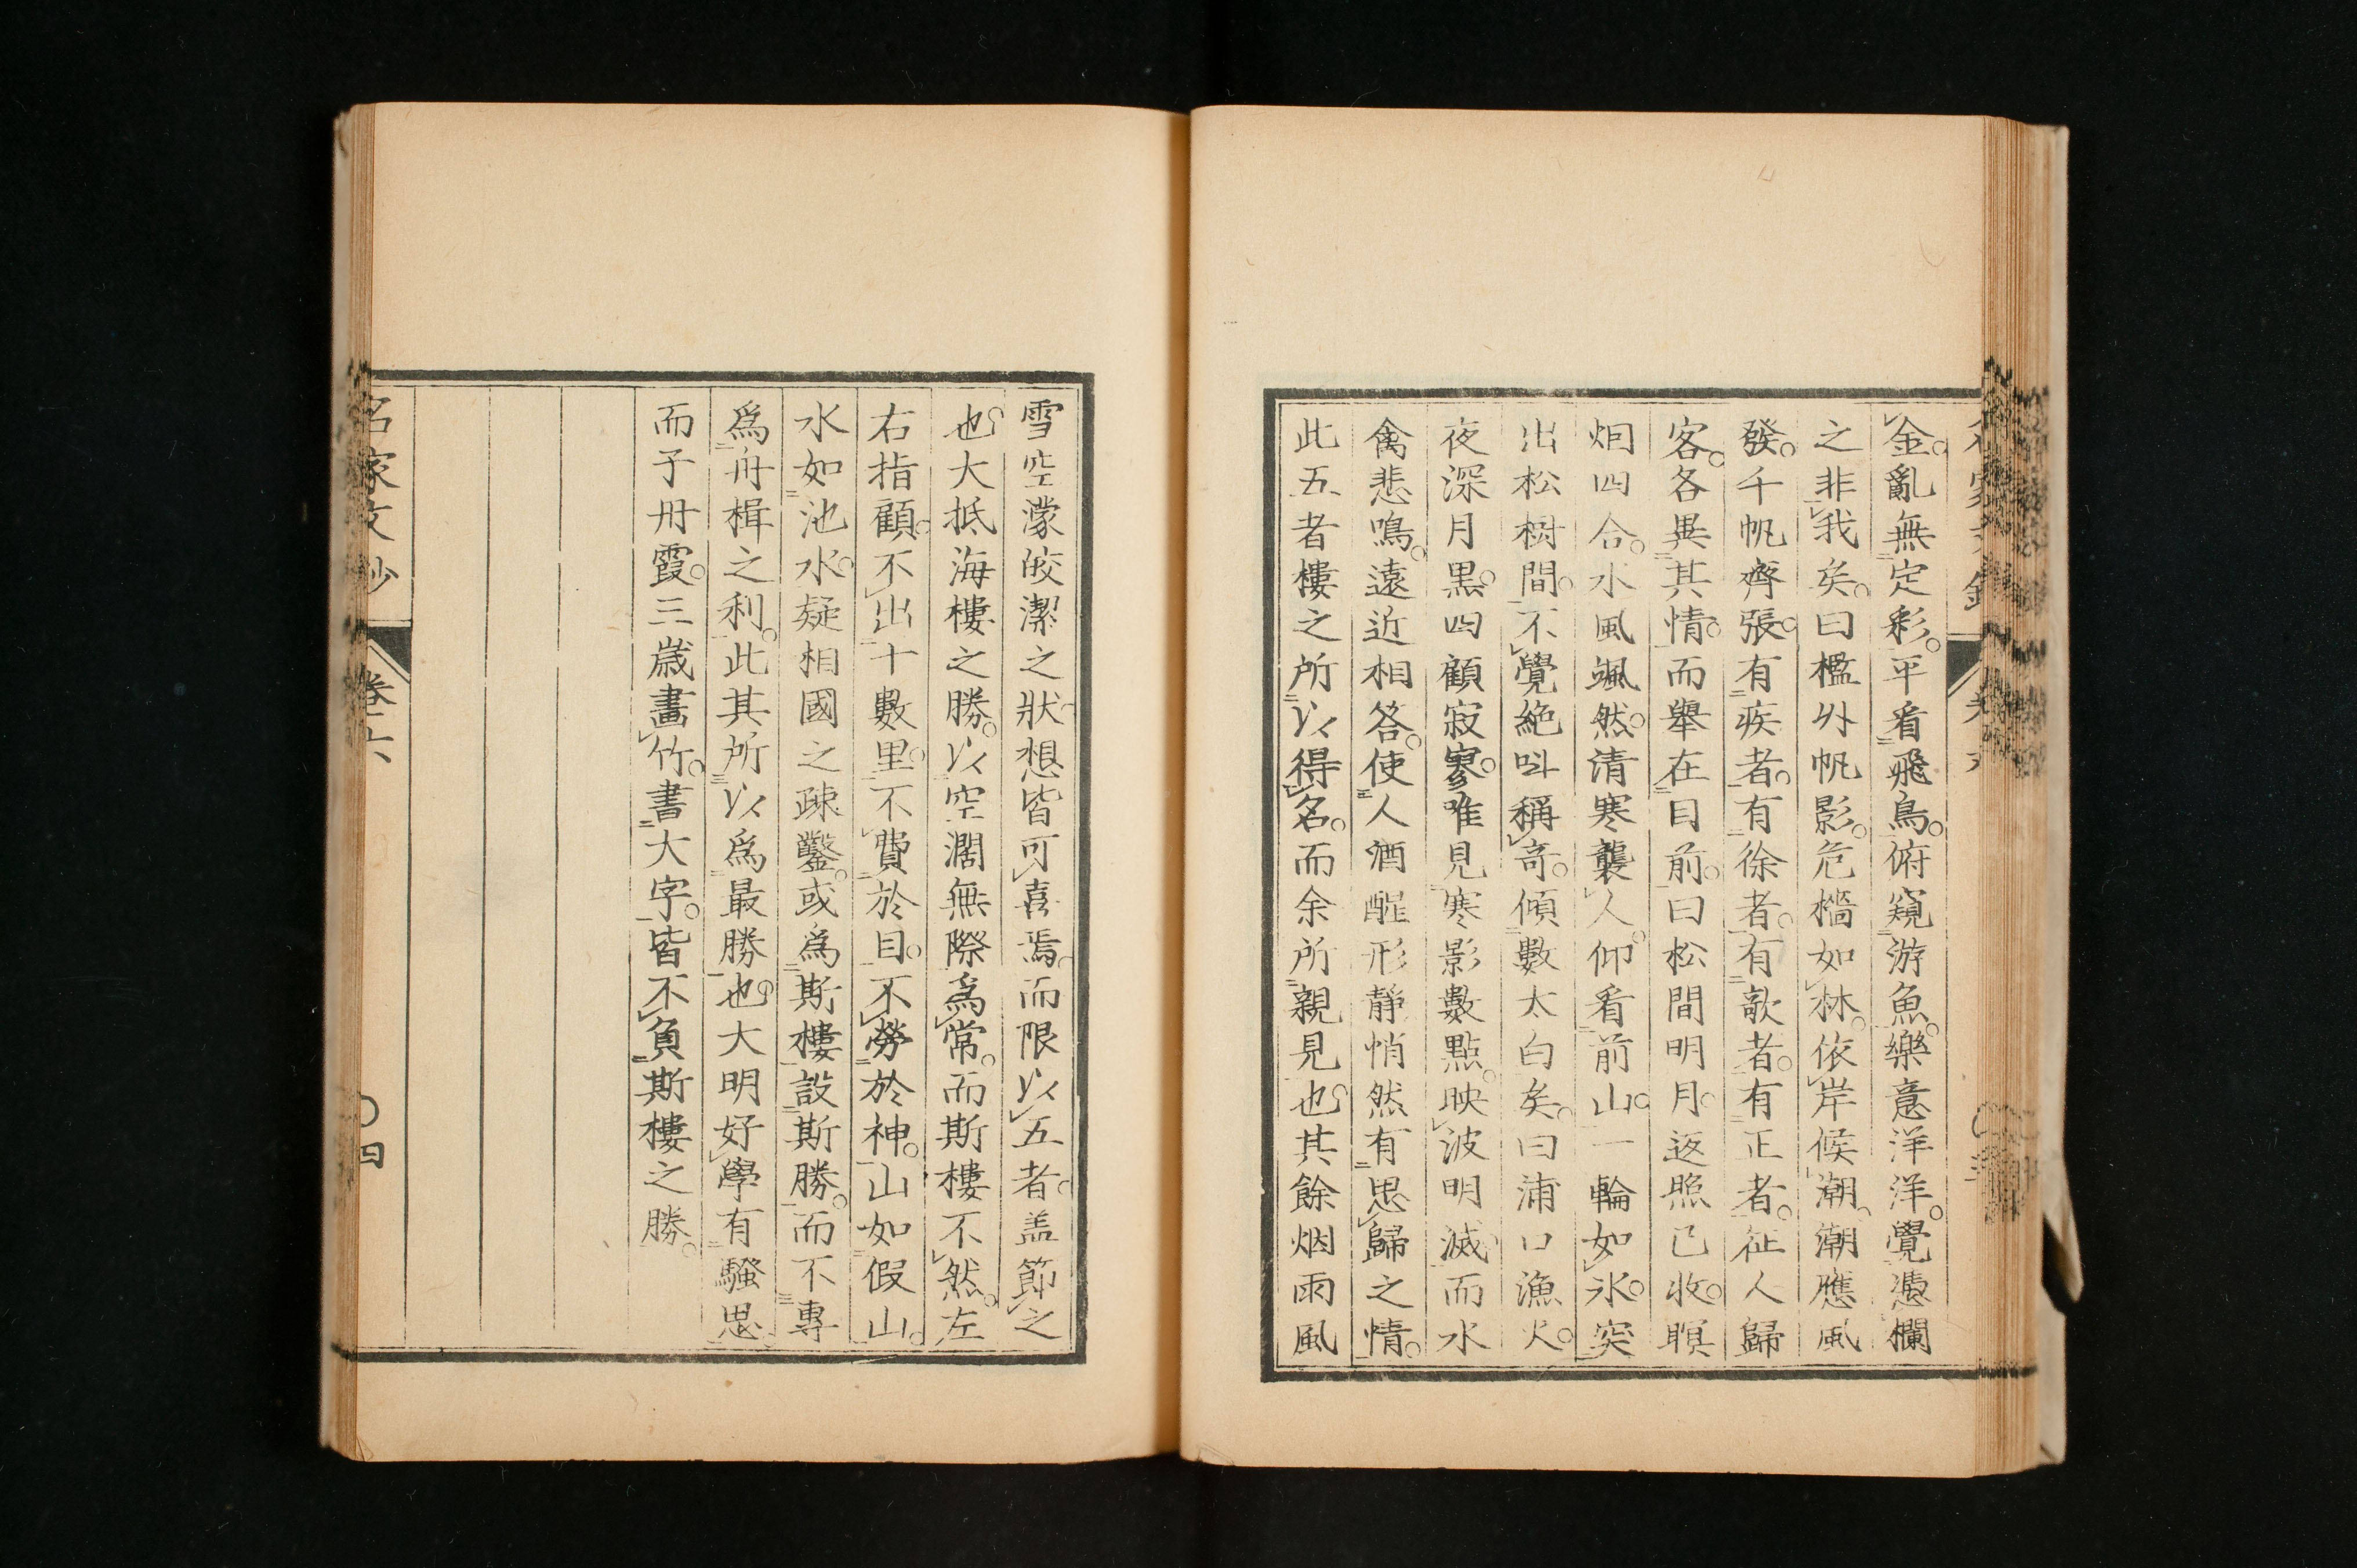 金。亂無定彩。平看飛鳥。俯窺游魚。樂意洋洋。覺憑欄
之非我矣。曰檻外帆影。危檣如林。依岸候潮。潮應風
發。千帆齊張。有疾者。有徐者。有欹者。有正者。征人歸
客。各異其情。而舉在目前。曰松間明月。返照已收。暝
烟四合。水風颯然。清寒襲人。仰看前山。一輪如氷。突
出松樹間。不覺絶叫稱奇。傾數太白矣。曰浦口漁火。
夜深月黒。四顧寂寥。唯見寒影數點。映波明滅。而水
禽悲鳴。遠近相答。使人酒醒形静悄然有思歸之情。
此五者樓之所以得名。而余所親見也。其餘烟雨風
雪空濛皎潔之狀。想皆可喜焉。而限以五者。盖節之
也。大抵海樓之勝。以空濶無際爲常。而斯樓不然。左
右指顧。不出十數里。不費於目。不勞於神。山如假山。
水如池水。疑相國之疎鑿。或爲斯樓設斯勝。而不專
爲舟楫之利。此其所以爲最勝也。大明好學有騷思。
而子丹霞。三歳畫竹。書大字。皆不負斯樓之勝。
名家文抄
卷六
〇四